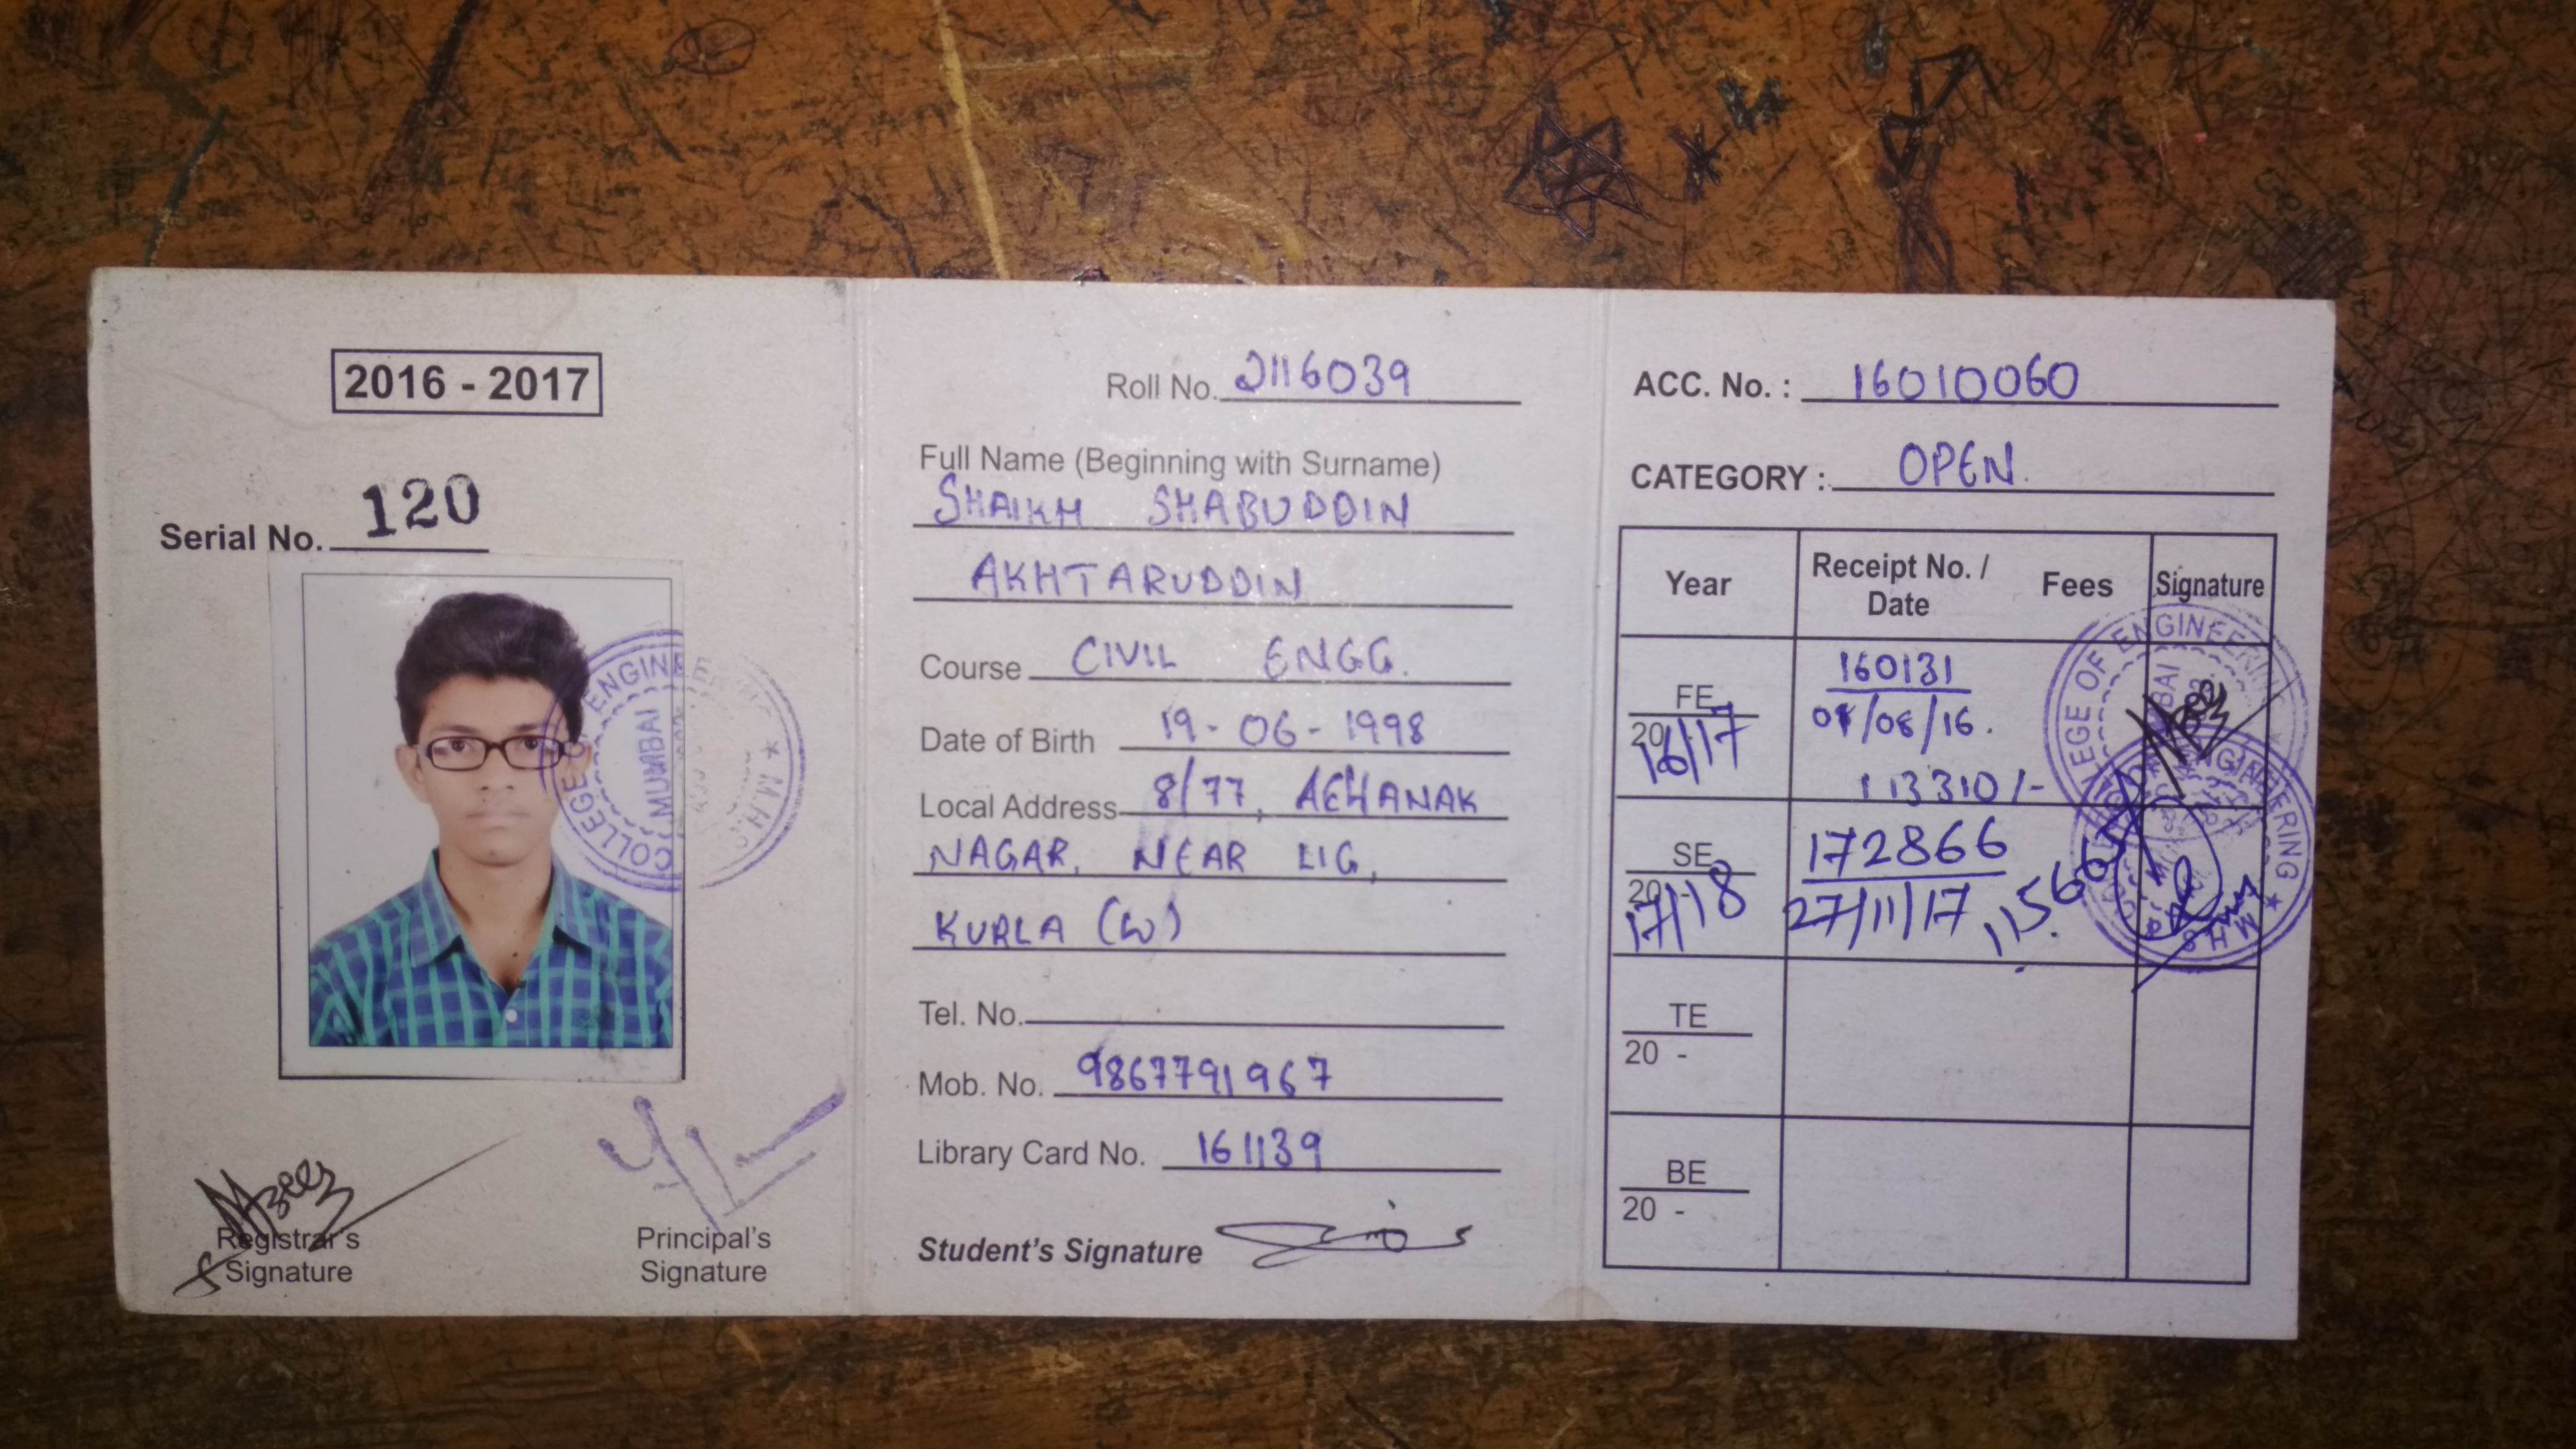 2016 - 2017
Serial No. 120
COLLEGE OF ENGINEERING ★ M.H.S.
MUMBAI
Registrar's
Signature
Principal's
Signature
Roll No. 2116039
Full Name (Beginning with Surname)
SHAIKH SHABUDDIN
AKHTARUDDIN
Course CIVIL ENGG.
Date of Birth 19-06-1998
Local Address 8/77,
NAGAR, NEAR LIG,
KURLA (W)
Tel. No.
Mob. No. 9867791967
Library Card No. 161139
Student's Signature
ACC. No. : 16010060
CATEGORY : OPEN.
Year Receipt No. / Date Fees Signature
FE 160131
2016/17 /08/16.
113310/-
SE 172866
2017/18 27/11/17
TE
20 -
BE
20 -